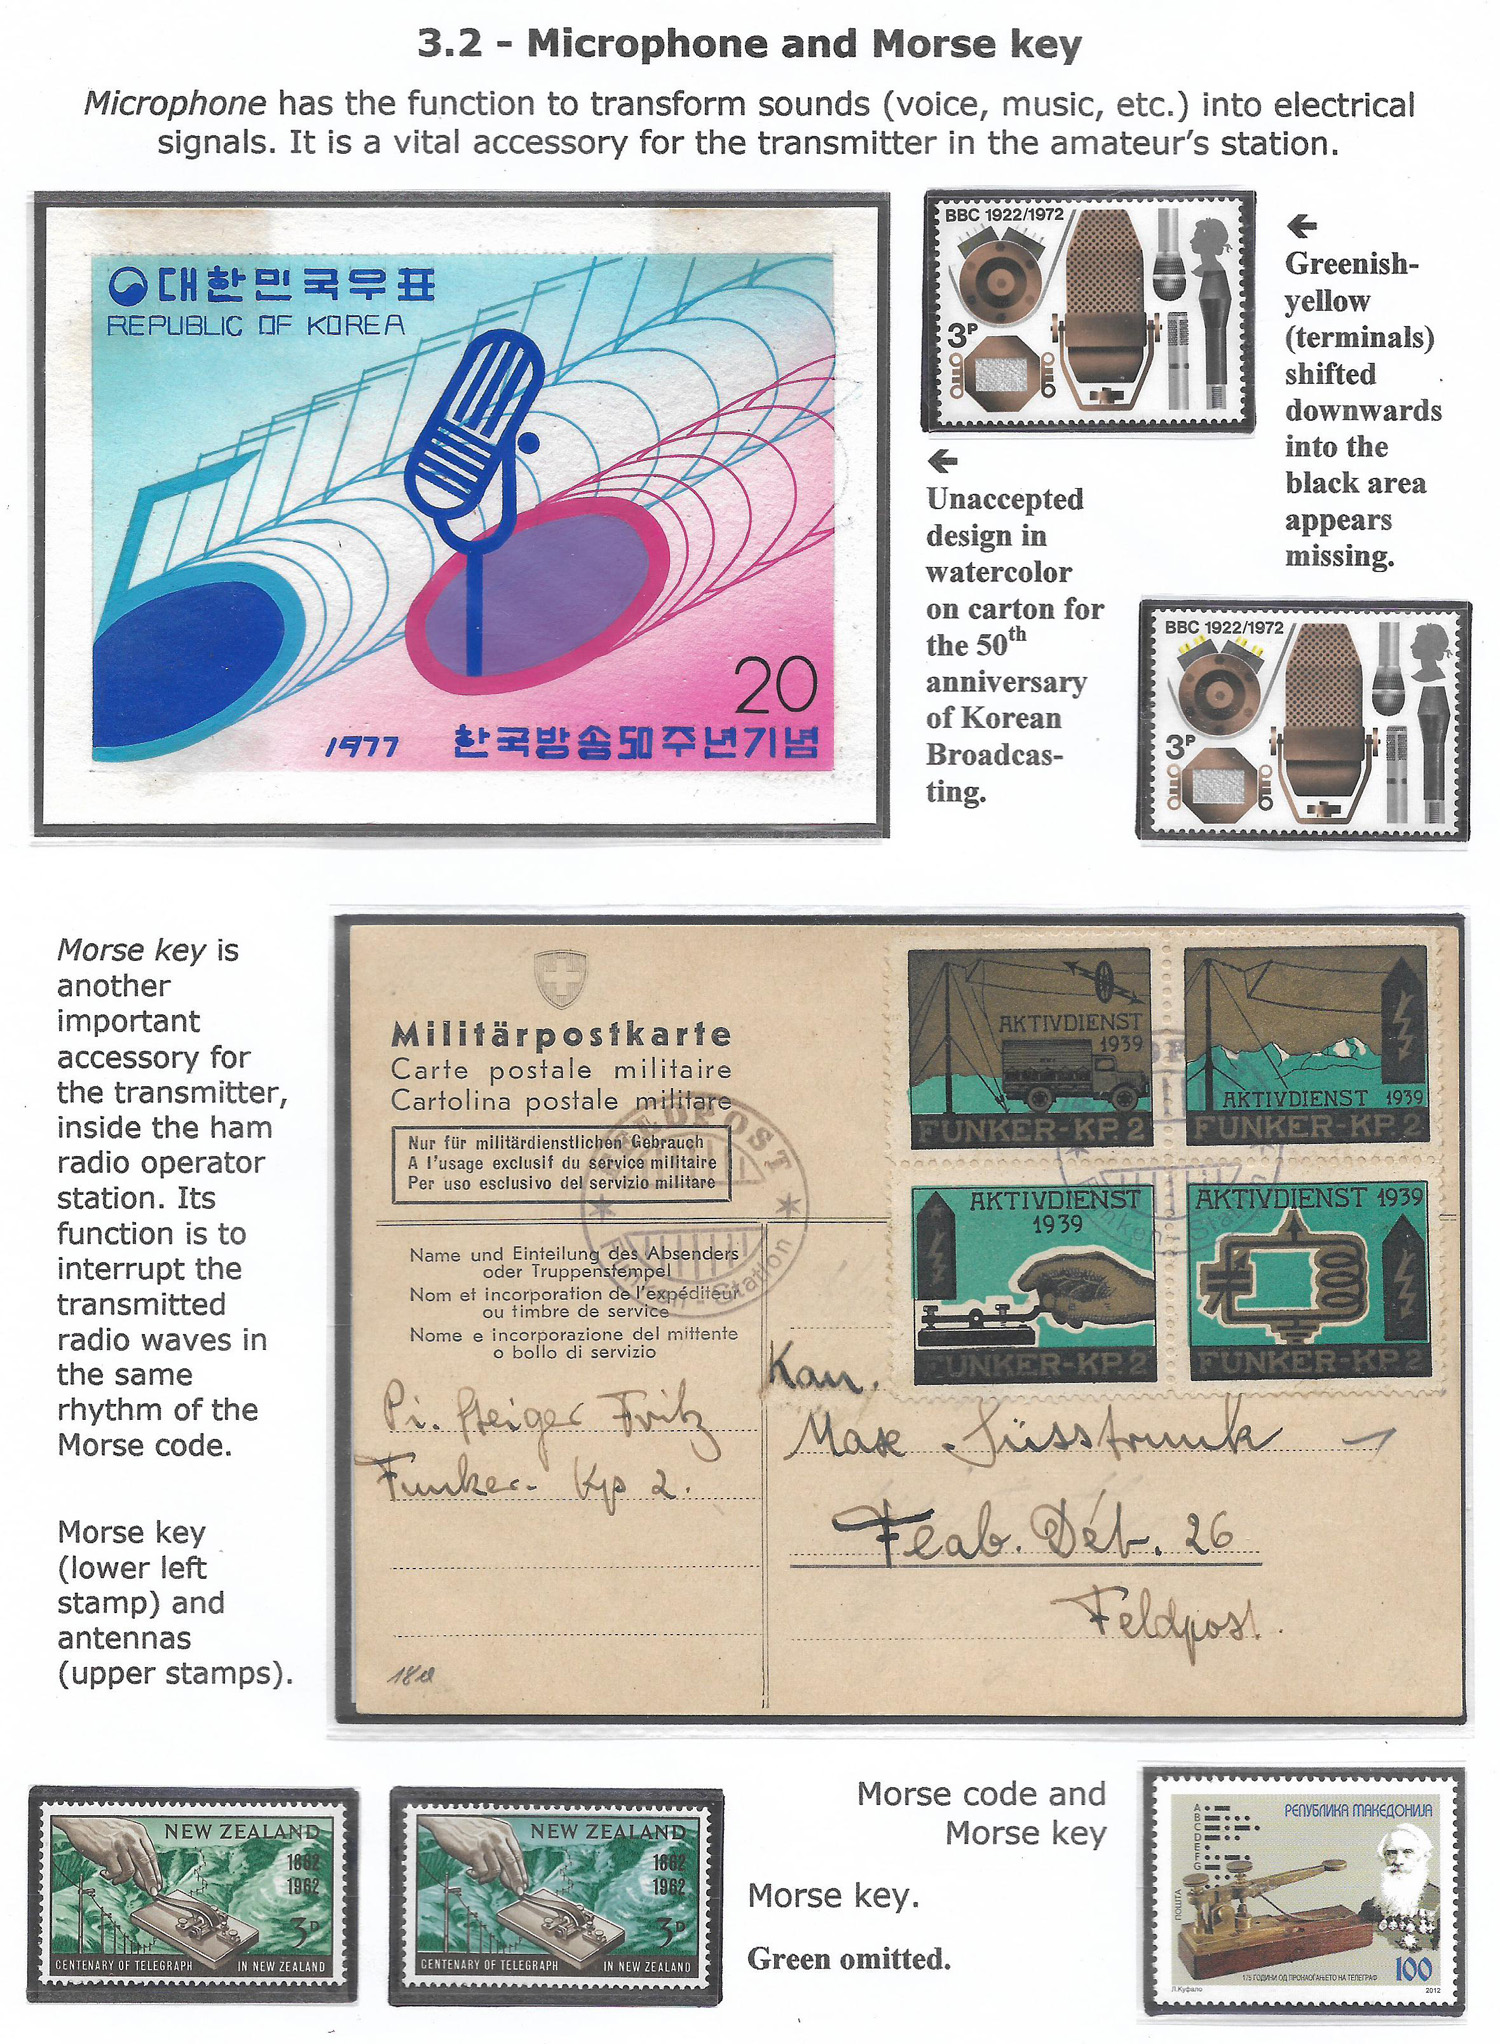 3.2 - Microphone and Morse key
Microphone has the function to transform sounds (voice, music, etc.) into electrical
signals. It is a vital accessory for the transmitter in the amateur's station.
대한민국우표
REPUBLIC OF KOREA
20
1977 한국방송50주년기념
BBC 1922/1972
3P
←
Greenish-
yellow
(terminals)
shifted
downwards
into the
black area
appears
missing.
←
Unaccepted
design in
watercolor
on carton for
the 50th
anniversary
of Korean
Broadcas-
ting.
BBC 1922/1972
3P
Morse key is
another
important
accessory for
the transmitter,
inside the ham
radio operator
station. Its
function is to
interrupt the
transmitted
radio waves in
the same
rhythm of the
Morse code.
Morse key
(lower left
stamp) and
antennas
(upper stamps).
Militärpostkarte
Carte postale militaire
Cartolina postale militare
Nur für militärdienstlichen Gebrauch
A l'usage exclusif du service militaire
Per uso esclusivo del servizio militare
Name und Einteilung des Absenders
oder Truppenstempel
Nom et incorporation de l'expéditeur
ou timbre de service
Nome e incorporazione del mittente
o bollo di servizio
FELDPOST
Funken-Station
AKTIVDIENST
1939
FUNKER-KP.2
AKTIVDIENST 1939
FUNKER-KP.2
AKTIVDIENST
1939
FUNKER-KP.2
AKTIVDIENST 1939
FUNKER-KP.2
Funken-Station
Pi. Steiger Fritz
Funker- Kp 2.
Kan.
Max Süsstrunk
Feab. Dét. 26
Feldpost.
NEW ZEALAND
1862
1962
3D
CENTENARY OF TELEGRAPH IN NEW ZEALAND
NEW ZEALAND
1862
1962
3D
CENTENARY OF TELEGRAPH IN NEW ZEALAND
Morse code and
Morse key
Morse key.
Green omitted.
РЕПУБЛИКА МАКЕДОНИЈА
A
B
C
D
E
F
G
ПОШТА
100
175 ГОДИНИ ОД ПРОНАОЃАЊЕТО НА ТЕЛЕГРАФ
Л.Куфало
2012